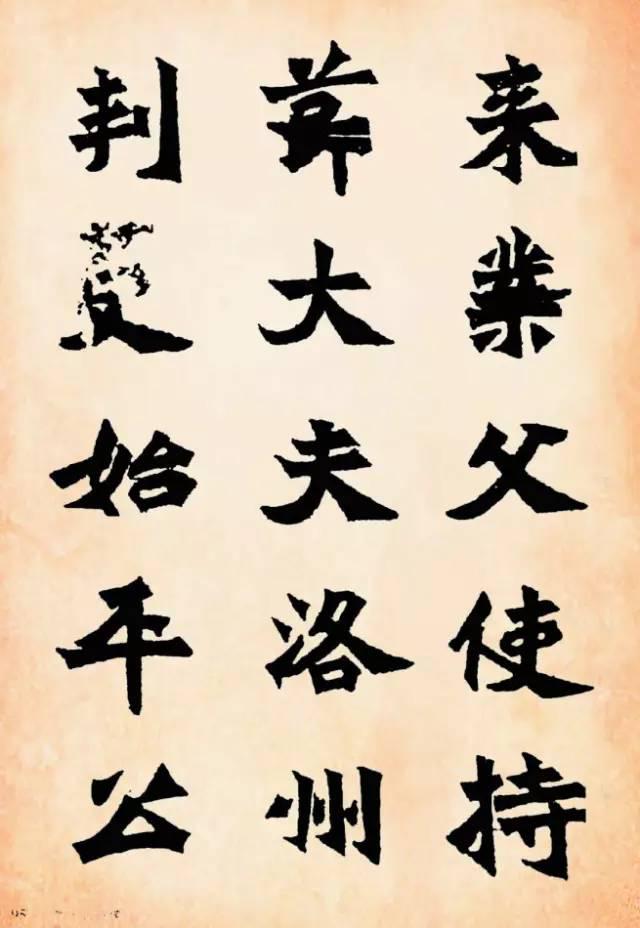 来業父使持
節大夫洛州
刺史始平公